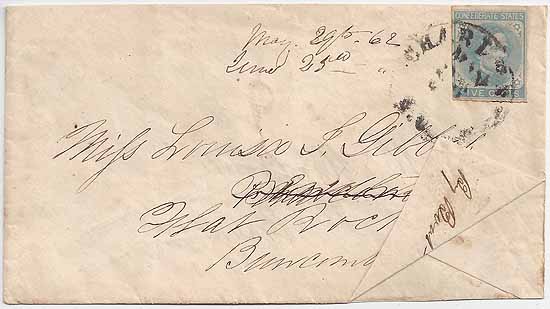 May. 29th 62
June 25th "
CONFEDERATE STATES
FIVE CENTS
CHARLES
Miss Louisa J. Gibb
Flat Rock
Buncomb